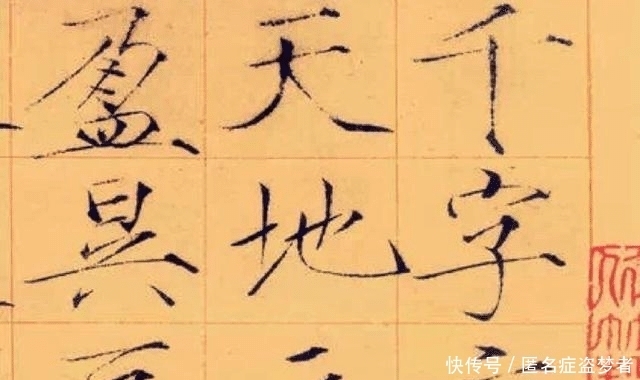 千字
天地
盈昃
快传号 / 匿名症盗梦者